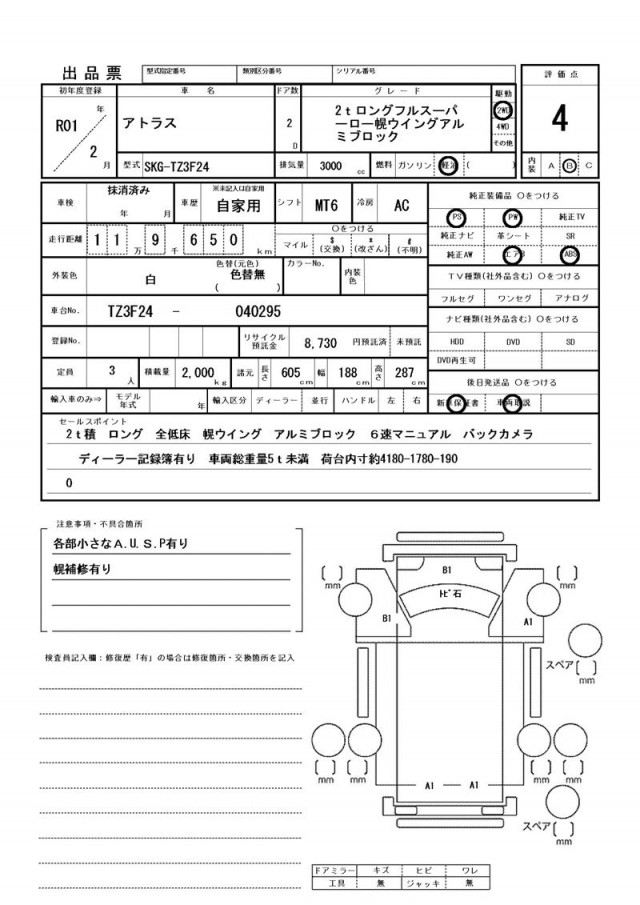 出品票 型式指定番号 類別区分番号 シリアル番号 評価点
初年度登録 車名 ドア数 グレード 駆動
R01 年 2 月 アトラス 2 D 2tロングフルスーパーロー幌ウイングアルミブロック 2WD 4WD その他 4
型式 SKG-TZ3F24 排気量 3000 cc 燃料 ガソリン 軽油 ( ) 内装 A B C
車検 抹消済み 年 月 車歴 ※未記入は自家用 自家用 シフト MT6 冷房 AC 純正装備品 Oをつける
PS PW 純正TV
走行距離 11万 9千 650 km Oをつける マイル $(交換) *(改ざん) #(不明) 純正ナビ 革シート SR
純正AW エアB ABS
外装色 白 色替(元色) 色替無 ( ) カラーNo. 内装色 TV種類(社外品含む) Oをつける
フルセグ ワンセグ アナログ
車台No. TZ3F24 - 040295 ナビ種類(社外品含む) Oをつける
登録No. リサイクル預託金 8,730 円預託済 未預託 HDD DVD SD
DVD再生可
定員 3 人 積載量 2,000 kg 諸元 長さ 605 cm 幅 188 cm 高さ 287 cm 後日発送品 Oをつける
輸入車のみ⇒ モデル年式 年 輸入区分 ディーラー 並行 ハンドル 左 右 新車保証書 車両取説
セールスポイント
2t積 ロング 全低床 幌ウイング アルミブロック 6速マニュアル バックカメラ
ディーラー記録簿有り 車両総重量5t未満 荷台内寸約4180-1780-190
0
注意事項・不具合箇所
各部小さなA.U.S.P有り
幌補修有り
検査員記入欄:修復歴「有」の場合は修復箇所・交換箇所を記入
B1
ﾄﾋﾞ石
B1 A1
mm mm
スペア
mm
mm mm mm mm
A1 A1
スペア
mm
ドアミラー キズ ヒビ ワレ
工具 無 ジャッキ 無